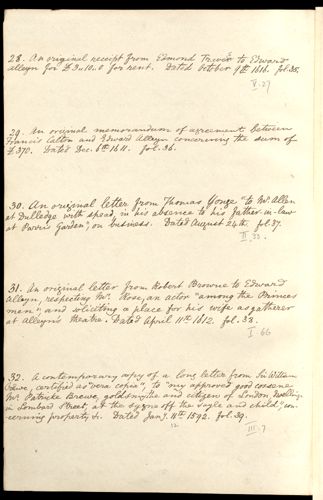 28. An original receipt from Edmond Traves to Edward
alleyn for £3.10.0 for rent. Dated October 9th 1616. fol. 35.
V. 29
29. An original memorandum of agreement between
Francis Calton and Edward Alleyn concerning the sum of
£370. Dated Dec. 6th 1611. fol. 36.
30. An original letter from Thomas Yonge "to Mr. Allen
at Dulledge with spead, in his absence to his father-in-law
at Parris Garden", on business. Dated August 24th. fol. 37.
II. 33.
31. An original letter from Robert Browne to Edward
Alleyn, respecting Mr. Rose, an actor "among the Princes
men", and soliciting a place for his wife as gatherer
at Alleyn's theatre. Dated April 11th 1612. fol. 38.
I. 66
32. A contemporary copy of a long letter from Sir William
Brewe, certified as "vera copia", to "my approved good cossene
Mr. Patricke Brewe, goldsmythe and citizen of London, dwelling
in Lombard Street, at the sygne off the Gayle and child", con-
cerning property &c. Dated Jany. 11th 1592. fol. 39.
12
III. 7